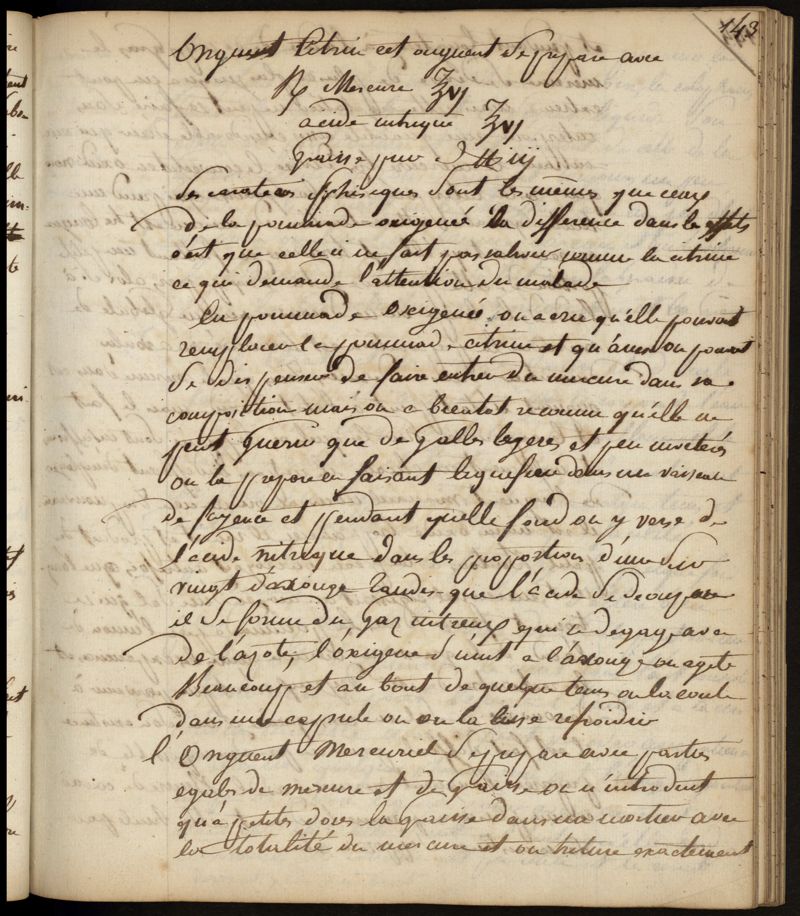 143
Onguent Citrin cet onguent se prepare avec
℞ Mercure ℥vj
acide nitrique ℥vj
Graisse pure
Ses caracteres Sphisiques sont les mêmes que ceux
de la pommade oxigenée la difference dans les effets
c'est que celle ci ne fait pas saliver comme la citrine
ce qui demande l'attention du malade
La pommade oxigenée on a cru qu'elle pouvoit
remplacer la pommade citrine et qu'ainsi on pouvoit
se dispenser de faire entrer du mercure dans sa
composition mais on a bientot reconnu qu'elle ne
peut Guerir que de Galles legeres et peu inveterés
on la prepare en faisant liquefier dans un vaisseau
de fayence et pendant qu'elle fond on y verse de
l'acide nitrique dans les proportions d'une sur
vingt d'axonge tandis que l'acide se decompose
il se forme du Gaz nitreux qui se degage avec
de l'azote, l'óxigene s'unit a l'axonge on agite
Beaucoup et au bout de quelque tems on la coule
dans une capsule ou on la laisse refroidir
l'Onguent Mercuriel se prepare avec parties
égales de mercure et de Graisse on n'introduit
qu'a petites doses la Graisse dans un mortier avec
la totalité du mercure et on triture exactement